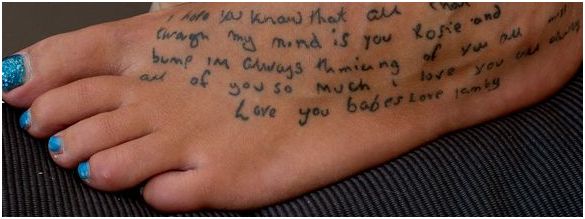 I hope you know that all
through my mind is you Rosie and
bump im always thinking of you all
all of you so much i love you all
Love you babes Love